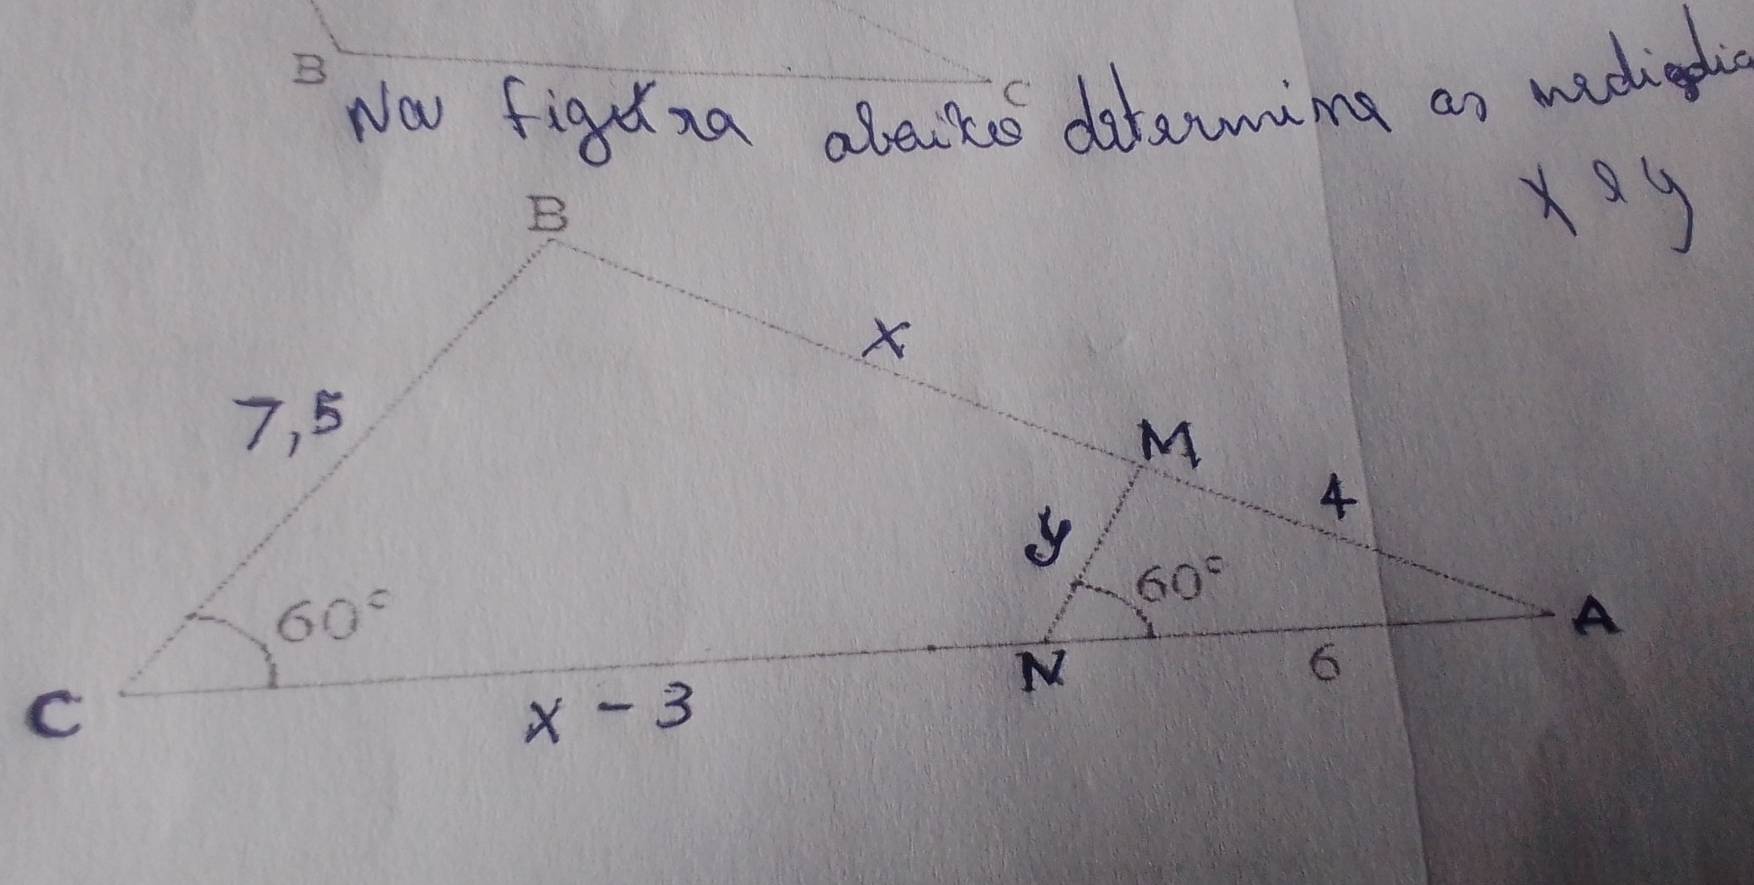 B
C
Na figura abaixo determina as
x e y
B
x
7,5
M
4
y
60°
60°
A
C
N
6
x - 3